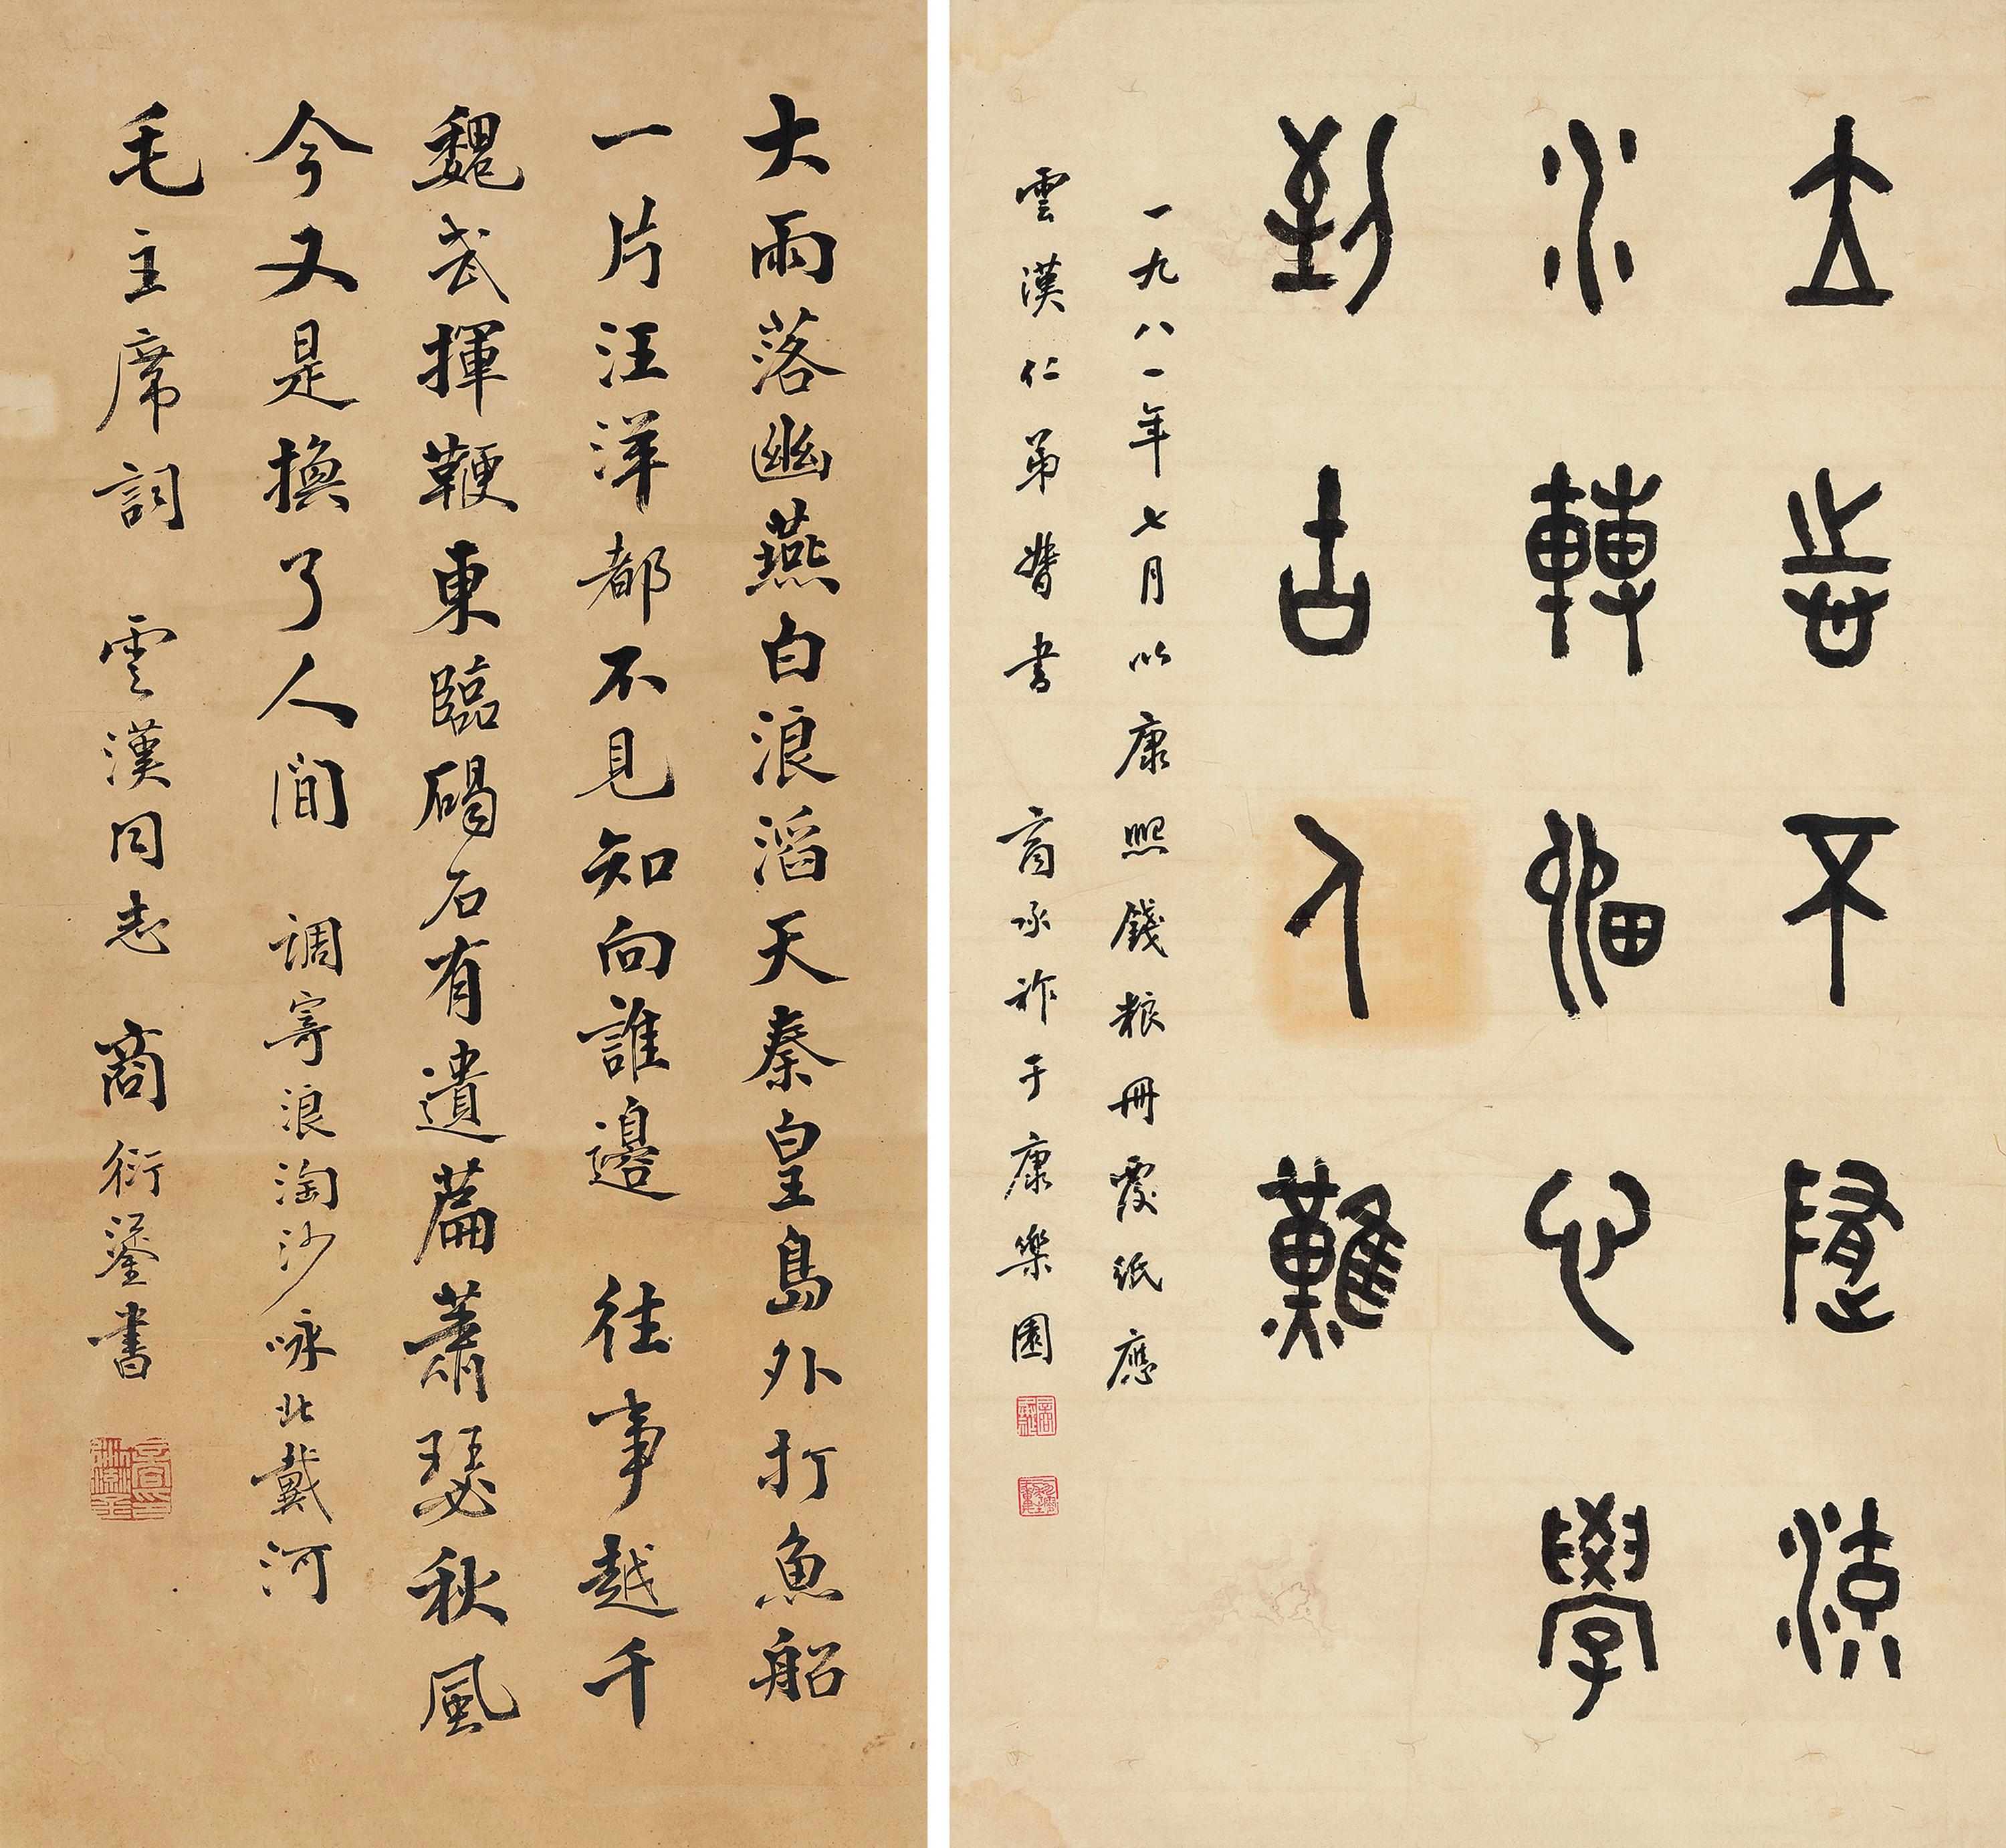 大雨落幽燕白浪滔天秦皇島外打魚船
一片汪洋都不見知向誰邊 往事越千
魏武揮鞭東臨碣石有遺篇蕭瑟秋風
今又是換了人間 调寄浪淘沙咏北戴河
毛主席詞 雲漢同志 商衍鎏書
立志不隨流
水轉留心學
到古人難
一九八一年七月以康熙錢粮冊覆紙應
雲漢仁弟督書 商承祚于康樂園